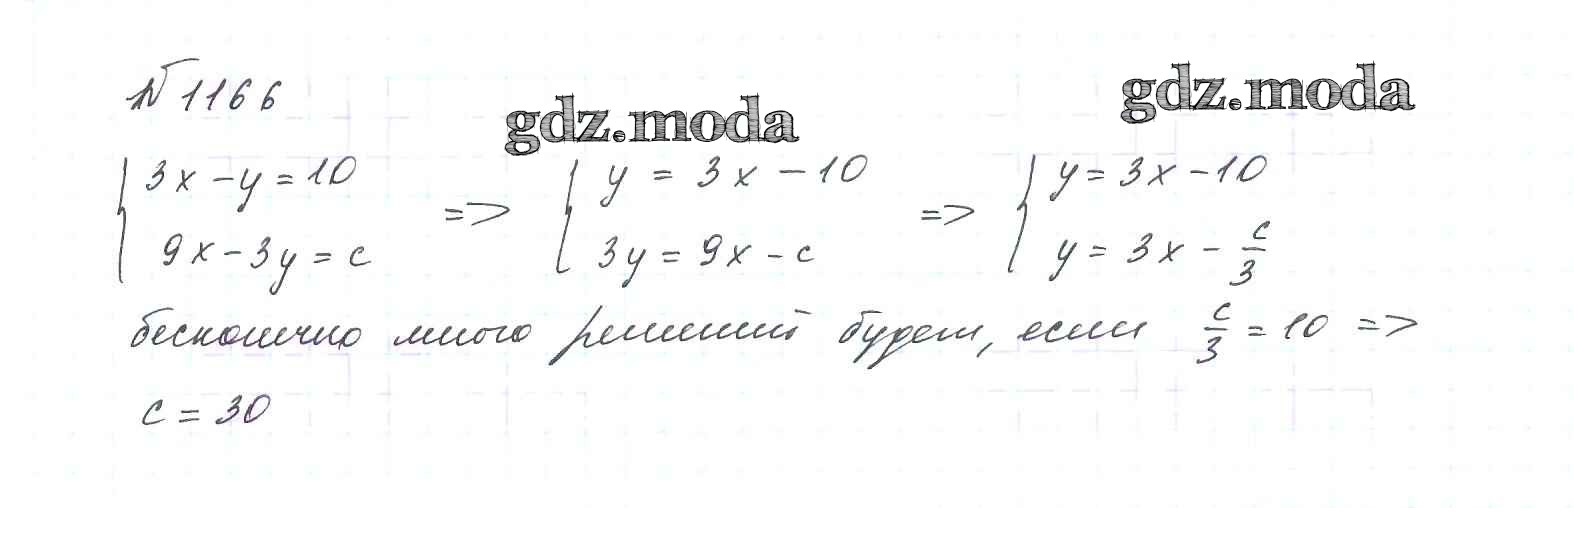 № 1166
gdz.moda
gdz.moda
{ 3x - y = 10 => { y = 3x - 10 => { y = 3x - 10
9x - 3y = c 3y = 9x - c y = 3x - c/3
бесконечно много решений будет, если c/3 = 10 =>
c = 30